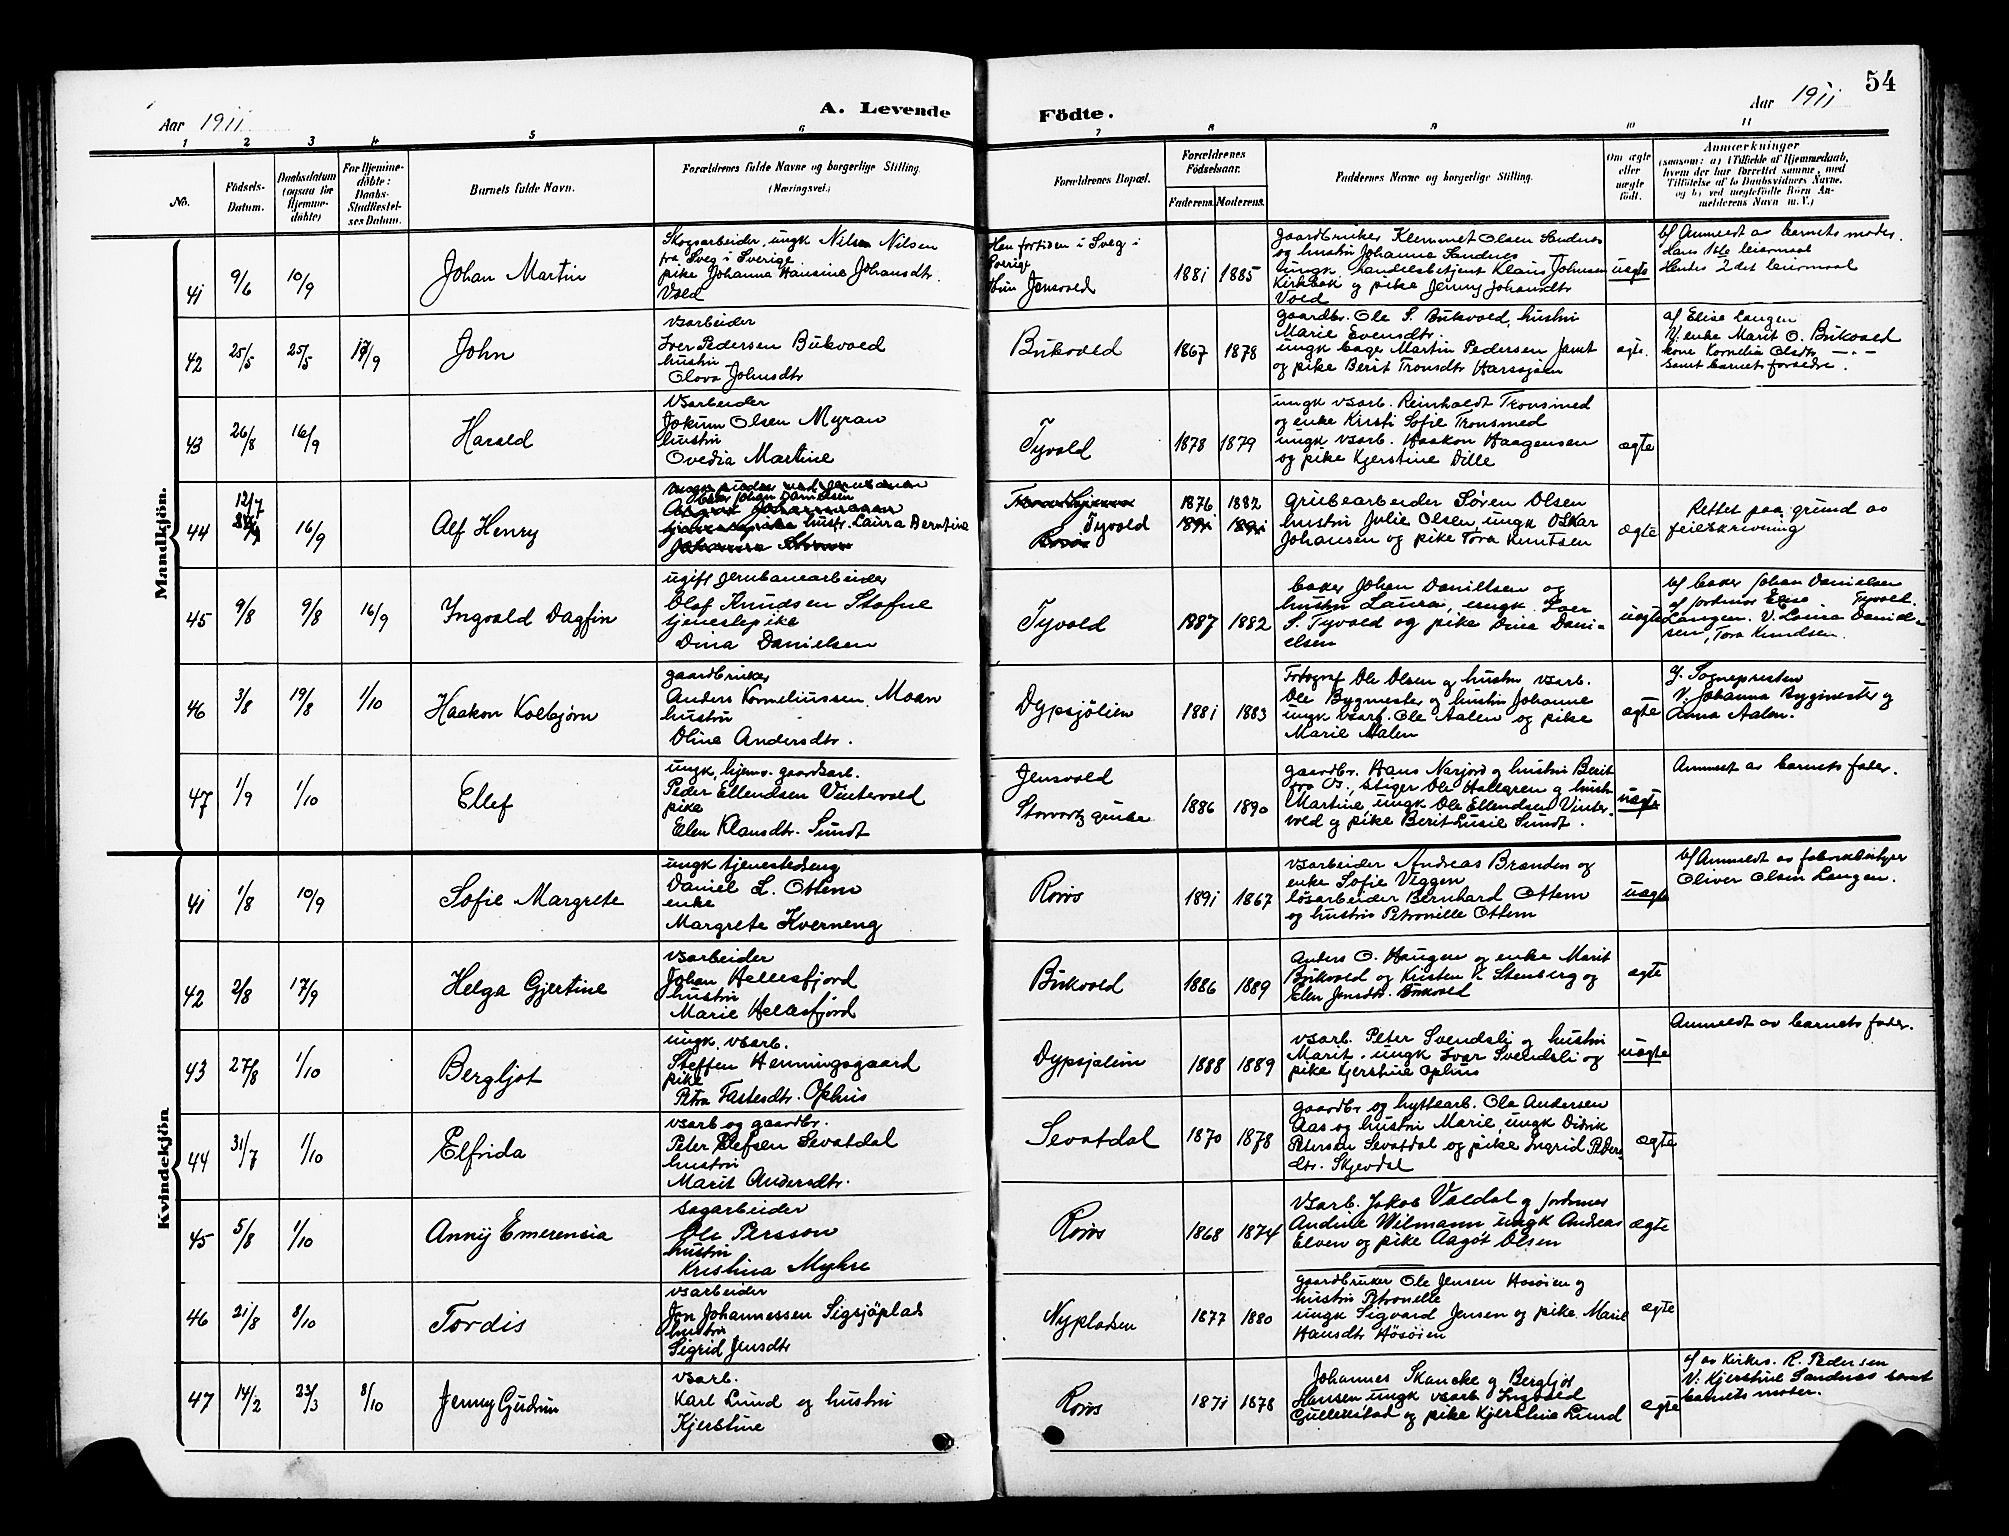 54
Aar 1911
A. Levende
Födte.
Aar 1911
1 2 3 4 5 6 7 8 9 10 11
No.
Födsels-
Datum.
Daabsdatum
(ogsaa for
Hjemme-
döbte)
For Hjemme-
döbte:
Daabs-
Stadfæstel-
ses Datum.
Barnets fulde Navn.
Forældrenes fulde Navne og borgerlige Stilling.
(Næringsvei.)
Forældrenes Bopæl.
Forældrenes
Födselsaar.
Faderens. Moderens.
Faddernes Navne og borgerlige Stilling.
Om ægte
eller
uægte
födt.
Anmærkninger
(saasom: a) i Tilfælde af Hjemmedaab,
hvem der har forrettet samme, med
Tilföielse af to Daabsvidners Navne,
og b) ved uægtefödte Börn An-
melderens Navn m. V.)
Mandkjön.
41 9/6 10/9
Johan Martin
Skogsarbeider, ungk Nils Nilsen
fra Sveg i Sverige
pike Johanna Hansine Johansdtr.
Vold
Han fortiden i Sveg i
Sverige
Hun Jensvold
1881 1885
gaardbruker Klemmet Olsen Sandnes
og hustru Johanne Sandnes
ungk. handelsbetjent Klaus Johnsen
Kirkbak og pike Jenny Johansdtr
Vold
uægte
b/ Anmeldt av barnets moder.
Hans 1ste leiermaal
Hendes 2det leiermaal
42 25/5 25/5 17/9
John
vsarbeider
Iver Pedersen Bukvold
hustru
Olova Johnsdtr
Bukvold
1867 1878
gaardbr. Ole S. Bukvold, hustru
Marie Evensdtr.
ungk bager Martin Pedersen Jamt
og pike Berit Tronsdtr Harsjøen
ægte.
af Elise Langen
V: enke Marit O. Bukvold
kone Kornelia Olsdtr — " —
samt barnets forældre.
43 26/8 16/9
Harald
vsarbeider
Jokum Olsen Myran
hustru
Ovedia Martine
Tyvold
1878 1879
ungk vsarb. Reinholdt Tronsmed
og enke Kristi Sofie Tronsmed
ungk vsarb. Haakon Haagensen
og pike Kjerstine Dille
ægte
44 12/7 16/9
Alf Henry
Johan Danielsen
hustr. Laura Berntine
Tyvold
1876 1882
1891 1891
Grubearbeider Søren Olsen
hustru Julie Olsen, ungk Oskar
Johansen og pike Tora Knutsen
ægte
Rettet paa grund av
feilskrivning
45 9/8 9/8 16/9
Ingvald Dagfin
ugift jernbanearbeider
Olaf Knudsen Stofne
tjenestepike
Dina Danielsen
Tyvold
1887 1882
baker Johan Danielsen og
hustru Laura, ungk. Iver
S. Tyvold og pike Dina Dani-
elsen
uægte
b/ baker Johan Danielsen
af jordmor Elise Tyvold.
Langen. V. Laura Daniel-
sen, Tora Knudsen.
46 3/8 19/8 1/10
Haakon Kolbjørn
gaardbruker
Anders Korneliussen Moan
hustru
Oline Andersdtr.
Dypsjølien
1881 1883
Fotograf Ole Olsen og hustru vsarb.
Ole Bygmester og hustru Johanne
ungk vsarb. Ole Aalen og pike
Marie Aalen
ægte
Sognepresten
V. Johanna Bygmester og
Anna Aalen.
47 1/9 1/10
Ellef
ungk, hjemv. gaardsarb.
Peder Ellendsen Vintervold
pike
Elen Klausdtr. Sundt
Jensvold
Storvartz grube
1886 1890
gaardbr. Hans Narjord og hustru Berit
fra Os., Stiger Ole Hallgren og hustru
Martine ungk Ole Ellendsen Vinter-
vold og pike Berit Lusie Sundt.
uægte
Anmeldt av barnets fader.
Kvindekjön.
41 1/8 10/9
Sofie Margrete
ungk tjenestedreng
Daniel L. Ottem
enke
Margrete Kverneng
Røros
1891 1867
vsarbeider Andreas Branden og
enke Sofie Viggen
løsarbeider Bernhard Ottem
og hustru Petronille Ottem
uægte
b/ Anmeldt av fabrikbestyrer
Oliver Olsen Langen.
42 2/8 17/9
Helga Gjertine
vsarbeider
Johan Hellesfjord
hustru
Marie Hellesfjord
Bukvold
1886 1889
Anders O. Haugen og enke Marit
Bukvold og Kristen V. Stenberg og
Elen Jensdtr. Bukvold
ægte
43 27/8 1/10
Bergljot
ungk, vsarb.
Steffen Henningsgaard
pike
Petra Fastesdtr. Ophus
Dypsjølien
1888 1889
vsarb. Peter Svendsli og hustru
Marit. ungk Ivar Svendsli og
pike Kjerstine Ophus
uægte
Anmeldt av barnets fader.
44 31/7 1/10
Elfrida
vsarb og gaardbr.
Peter Elefsen Sevatdal
hustru
Marit Andersdtr.
Sevatdal
1870 1878
gaardbr og hyttearb. Ole Andersen
Aas og hustru Marie, ungk Didrik
Petersen Sevatdal og pike Ingrid Peders-
dtr. Skjevdal
ægte
45 5/8 1/10
Anny Emerensia
sagarbeider
Ole Persson
hustru
Kristina Myhre
Røros
1868 1874
Vsarb. Jakob Valdal og jordmor
Andrine Wilmann ungk Andreas
Elven og pike Aagot Olsen
ægte
46 21/8 8/10
Tordis
vsarbeider
Jon Johannessen Sigsjøplads
hustru
Sigrid Jensdtr
Nypladsen
1877 1880
gaardbruker Ole Jensen Hosøien og
hustru Petronelle
ungk Sigvard Jensen og pike Marie
Hansdtr Høsøien
ægte
47 14/2 23/3 8/10
Jenny Gudrun
vsarb.
Karl Lund og hustru
Kjerstine
Røros
1871 1878
Johannes Skancke og Bergljot
Hansen ungk vsarb. Ingvald
Gullikstad og pike Kjerstine Lund
ægte
af av Kirkes. R. Pedersen
V: Kjerstine Sandnes samt
barnets moter.